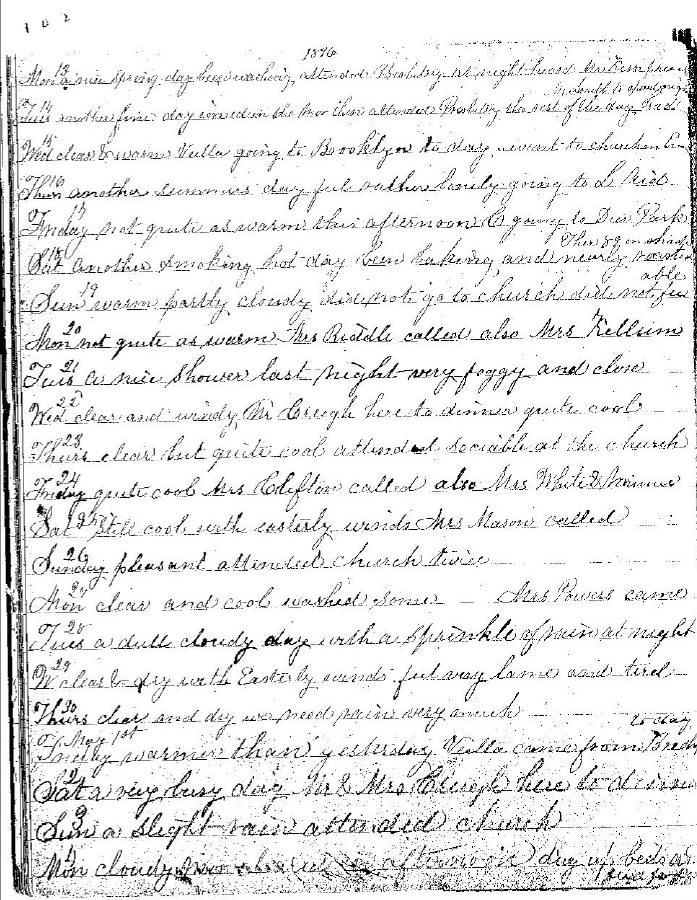 102
1896
Mon 13 a nice spring day been washing, attended Presbytry at night heard Mr
Tues 14 another fine day ironed in the mor then attended Presbytry the rest of the day
Wed 15 clear & warm Veulla going to Brooklyn to day went to church in Eve
Thur 16 another summers day feel rather lonely going to L Aid
Friday 17 not quite as warm this afternoon C going to Deer Park
Ther 89 in shade
Sat 18 another smoking hot day been baking and nearly roasted
Sun 19 warm partly cloudy did not go to church did not feel
able
Mon 20 not quite as warm Mrs Riddle called also Mrs Kellum
Tues 21 a nice shower last night very foggy and close
Wed 22 clear and windy Mr Creegh here to dinner quite cool
Thurs 23 clear but quite cool attended sociable at the church
Friday 24 quite cool Mrs Clifton called also Mrs White &
Sat 25 still cool with easterly winds Mrs Mason called
Sunday 26 pleasant attended church twice
Mon 27 clear and cool washed some Mrs Powers came
Tues 28 a dull cloudy day with a sprinkle of rain at night
W 29 clear & dry with Easterly winds feel very lame and tired
Thurs 30 clear and dry we need rain very much
to day
Friday May 1st warmer than yesterday Veulla came from
Sat 2 a very busy day Mr & Mrs Creegh here to dinner
Sun 3 a slight rain attended church
Mon 4 cloudy afternoon dug up beds